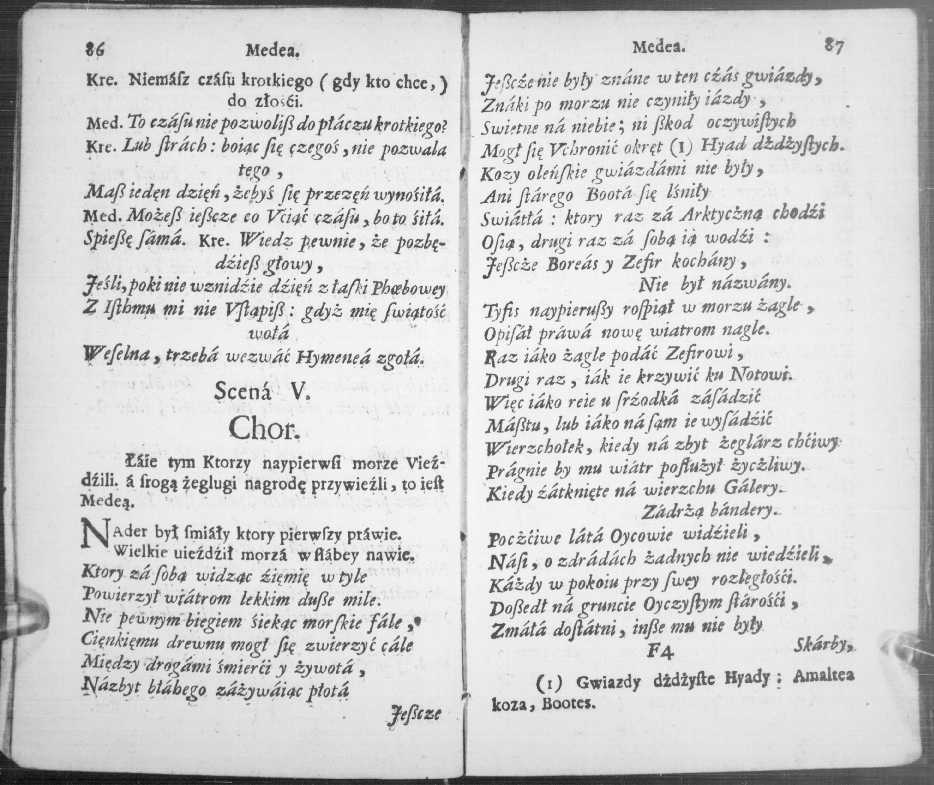 86 Medea.
Kre. Niemász czásu krotkiego ( gdy kto chce, )
do złośći.
Med. To czásu nie pozwolisz do płáczu krotkiego?
Kre. Lub stràch: boiąc się czegoś, nie pozwala
tego,
Masz ieden dzięń, żebyś się przezęń wynośiłá.
Med. Możesz ieszcze co Vciąć czásu, bo to śiłá.
Spieszę sámá. Kre. Wiedz pewnie, że pozbę-
dźiesz głowy,
Jeśli, poki nie wznidźie dzięń z łaski Phœbowey
Z Isthmu mi nie Vstąpisz: gdyż mię swiątość
wołá
Weselna, trzebá wezwáć Hymeneá zgołá.
Scená V.
Chor.
Łáie tym Ktorzy naypierwsi morze Vieź-
dźili. á srogą żeglugi nagrodę przywieźli, to iest
Medeą.
NAder był smiáły ktory pierwszy práwie.
Wielkie uieźdźił morzá w słábey nawie.
Ktory zá sobą widząc źięmię w tyle
Powierzył wiátrom lekkim dusze mile.
Nie pewnym biegiem śiekąc morskie fále,
Cięnkięmu drewnu mogł się zwierzyć cále
Między drogámi śmierći y żywotá,
Názbyt błáhego záżywáiąc płotá
Jeszcze
Medea. 87
Jeszcźe nie były znáne w ten cźás gwiázdy,
Znáki po morzu nie czyniły iázdy,
Swietne ná niebie; ni szkod oczywistych
Mogł się Vchronić okręt (1) Hyad dżdżystych.
Kozy oleńskie gwiázdámi nie były,
Ani stárego Bootá się lśniły
Swiátłá: ktory raz zá Arktyczną chodźi
Osią, drugi raz zá sobą ią wodźi:
Jeszcże Boreás y Zefir kochány,
Nie był názwány.
Tyfis naypierwszy rospiął w morzu żagle,
Opisał práwá nowę wiatrom nagle.
Raz iáko żagle podáć Zefirowi,
Drugi raz, iák ie krzywić ku Notowi.
Więc iáko reie u srźodká zásádzić
Másztu, lub iáko ná sąm ie wysádźić
Wierzchołek, kiedy ná zbyt żeglárz chćiwy
Prágnie by mu wiátr posłużył życżliwy.
Kiedy źátknięte ná wierzchu Gálery.
Zádrżą bándery.
Poczćiwe látá Oycowie widźieli,
Náśi, o zdrádách żadnych nie wiedźieli,
Káżdy w pokoiu przy swey rozległośći.
Doszedł ná gruncie Oyczystym stárośći,
Zmáłá dostátni, insze mu nie były
F4 Skárby,
(1) Gwiazdy dżdżyste Hyady; Amaltea
koza, Bootes.